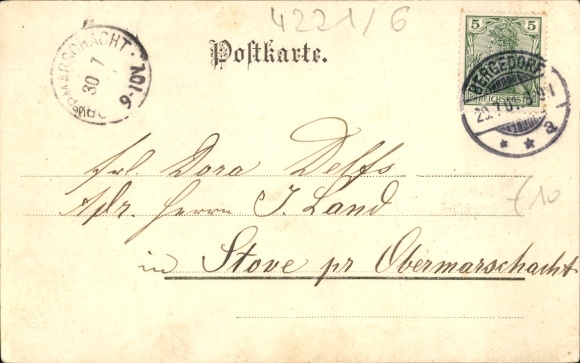 4221/6
Postkarte.
OBERMARSCHACHT
30 7
6-7 N
5
REICHSPOST
BERGEDORF
29.7.01.
* * a
Frl. Dora Delfs
Adr. Herrn J. Land
in Stove pr Obermarschacht
f 10